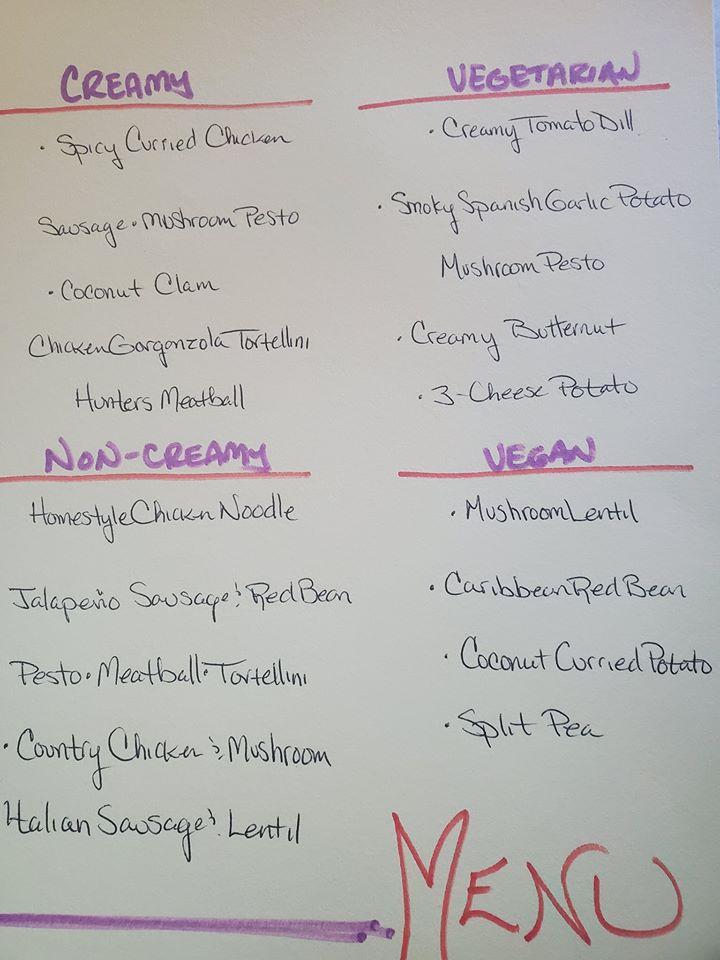 CREAMY
• Spicy Curried Chicken
Sausage • Mushroom Pesto
• Coconut Clam
Chicken Gorgonzola Tortellini
Hunters Meatball
VEGETARIAN
• Creamy Tomato Dill
• Smoky Spanish Garlic Potato
Mushroom Pesto
• Creamy Butternut
• 3-Cheese Potato
NON-CREAMY
Homestyle Chicken Noodle
Jalapeño Sausage & Red Bean
Pesto • Meatball • Tortellini
• Country Chicken & Mushroom
Italian Sausage & Lentil
VEGAN
• Mushroom Lentil
• Caribbean Red Bean
• Coconut Curried Potato
• Split Pea
MENU